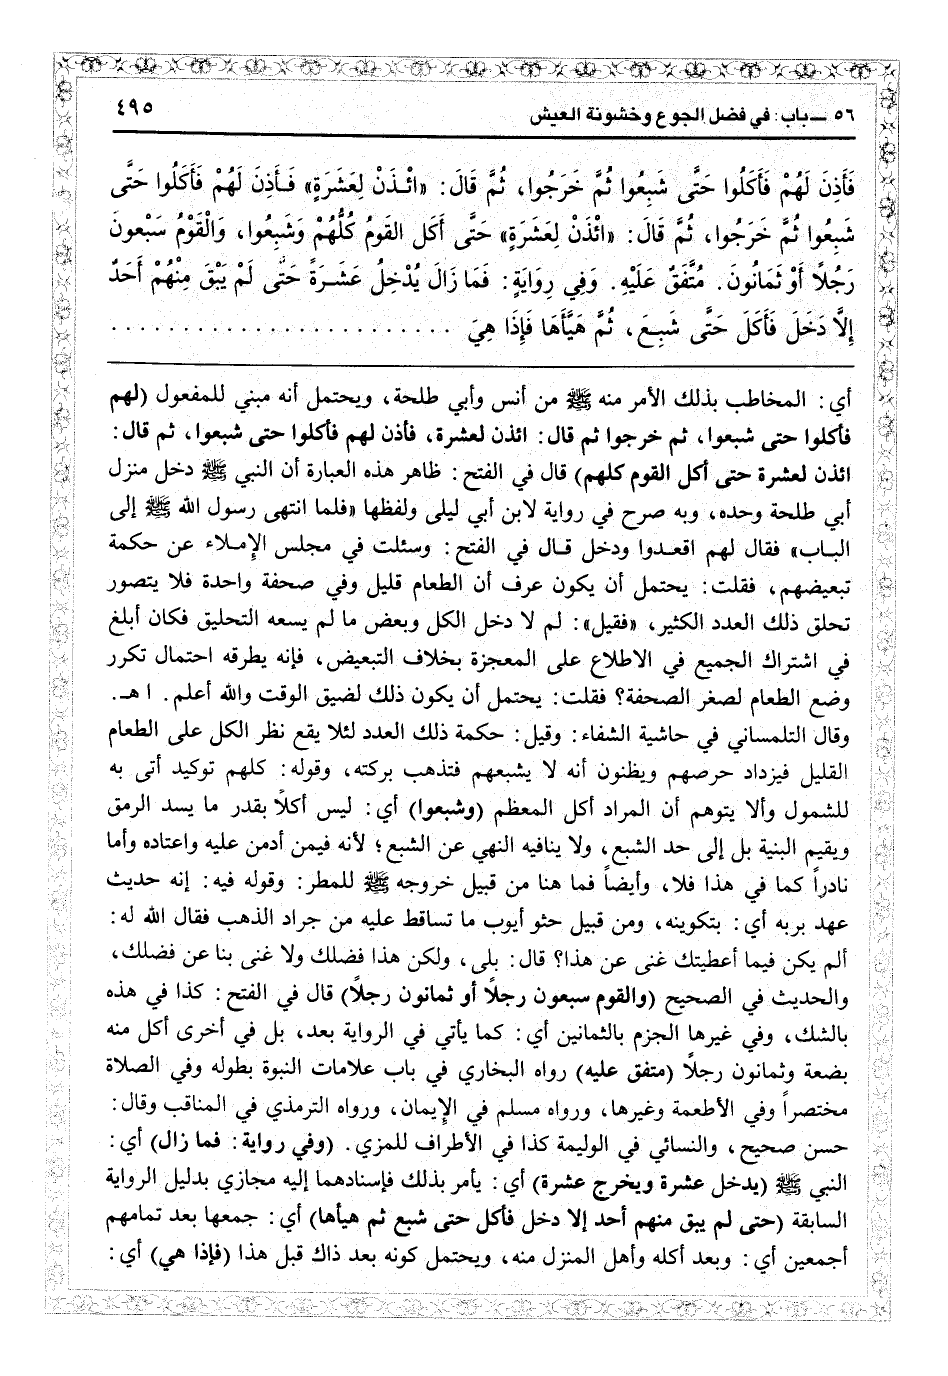 ٥٦ ــ باب: في فضل الجوع وخشونة العيش ٤٩٥
فَأَذِنَ لَهُمْ فَأَكَلُوا حَتَّى شَبِعُوا ثُمَّ خَرَجُوا، ثُمَّ قَالَ: «ائْـذَنْ لِعَشَرَةٍ» فَـأَذِنَ لَهُمْ فَأَكَلُوا حَتَّى
شَبِعُوا ثُمَّ خَرَجُوا، ثُمَّ قَالَ: «ائْذَنْ لِعَشَرَةٍ» حَتَّى أَكَل القَومُ كُلُّهُمْ وَشَبِعُوا، وَالْقَوْمُ سَبْعونَ
رَجُلًا أَوْ ثَمَانُونَ. مُتَّفَقٌ عَلَيْهِ. وَفِي رِوَايَةٍ: فَمَا زَالَ يُدْخِلُ عَشَـرَةً حَتَّى لَمْ يَبْقَ مِنْهُمْ أَحَدٌ
إِلَّا دَخَلَ فَأَكَلَ حَتَّى شَبِعَ، ثُمَّ هَيَّأَهَا فَإِذَا هِيَ . . . . . . . . . . . . . . . . . . . . . . . .
أي: المخاطب بذلك الأمر منه ﷺ من أنس وأبي طلحة، ويحتمل أنه مبني للمفعول (لهم
فأكلوا حتى شبعوا، ثم خرجوا ثم قال: ائذن لعشرة، فأذن لهم فأكلوا حتى شبعوا، ثم قال:
ائذن لعشرة حتى أكل القوم كلهم) قال في الفتح: ظاهر هذه العبارة أن النبي ﷺ دخل منزل
أبي طلحة وحده، وبه صرح في رواية لابن أبي ليلى ولفظها «فلما انتهى رسول الله ﷺ إلى
البـاب» فقال لهم اقعـدوا ودخل قـال في الفتح: وسئلت في مجلس الإمـلاء عن حكمة
تبعيضهم، فقلت: يحتمل أن يكون عرف أن الطعام قليل وفي صحفة واحدة فلا يتصور
تحلق ذلك العدد الكثير، «فقيل»: لم لا دخل الكل وبعض ما لم يسعه التحليق فكان أبلغ
في اشتراك الجميع في الاطلاع على المعجزة بخلاف التبعيض، فإنه يطرقه احتمال تكرر
وضع الطعام لصغر الصحفة؟ فقلت: يحتمل أن يكون ذلك لضيق الوقت والله أعلم. ا هـ.
وقال التلمساني في حاشية الشفاء: وقيل: حكمة ذلك العدد لئلا يقع نظر الكل على الطعام
القليل فيزداد حرصهم ويظنون أنه لا يشبعهم فتذهب بركته، وقوله: كلهم توكيد أتى به
للشمول وألا يتوهم أن المراد أكل المعظم (وشبعوا) أي: ليس أكلاً بقدر ما يسد الرمق
ويقيم البنية بل إلى حد الشبع، ولا ينافيه النهي عن الشبع؛ لأنه فيمن أدمن عليه واعتاده وأما
نادراً كما في هذا فلا، وأيضاً فما هنا من قبيل خروجه ﷺ للمطر: وقوله فيه: إنه حديث
عهد بربه أي: بتكوينه، ومن قبيل حثو أيوب ما تساقط عليه من جراد الذهب فقال الله له:
ألم يكن فيما أعطيتك غنى عن هذا؟ قال: بلى، ولكن هذا فضلك ولا غنى بنا عن فضلك،
والحديث في الصحيح (والقوم سبعون رجلاً أو ثمانون رجلاً) قال في الفتح: كذا في هذه
بالشك، وفي غيرها الجزم بالثمانين أي: كما يأتي في الرواية بعد، بل في أخرى أكل منه
بضعة وثمانون رجلاً (متفق عليه) رواه البخاري في باب علامات النبوة بطوله وفي الصلاة
مختصراً وفي الأطعمة وغيرها، ورواه مسلم في الإيمان، ورواه الترمذي في المناقب وقال:
حسن صحيح، والنسائي في الوليمة كذا في الأطراف للمزي. (وفي رواية: فما زال) أي:
النبي ﷺ (يدخل عشرة ويخرج عشرة) أي: يأمر بذلك فإسنادهما إليه مجازي بدليل الرواية
السابقة (حتى لم يبق منهم أحد إلا دخل فأكل حتى شبع ثم هيأها) أي: جمعها بعد تمامهم
أجمعين أي: وبعد أكله وأهل المنزل منه، ويحتمل كونه بعد ذاك قبل هذا (فإذا هي) أي: